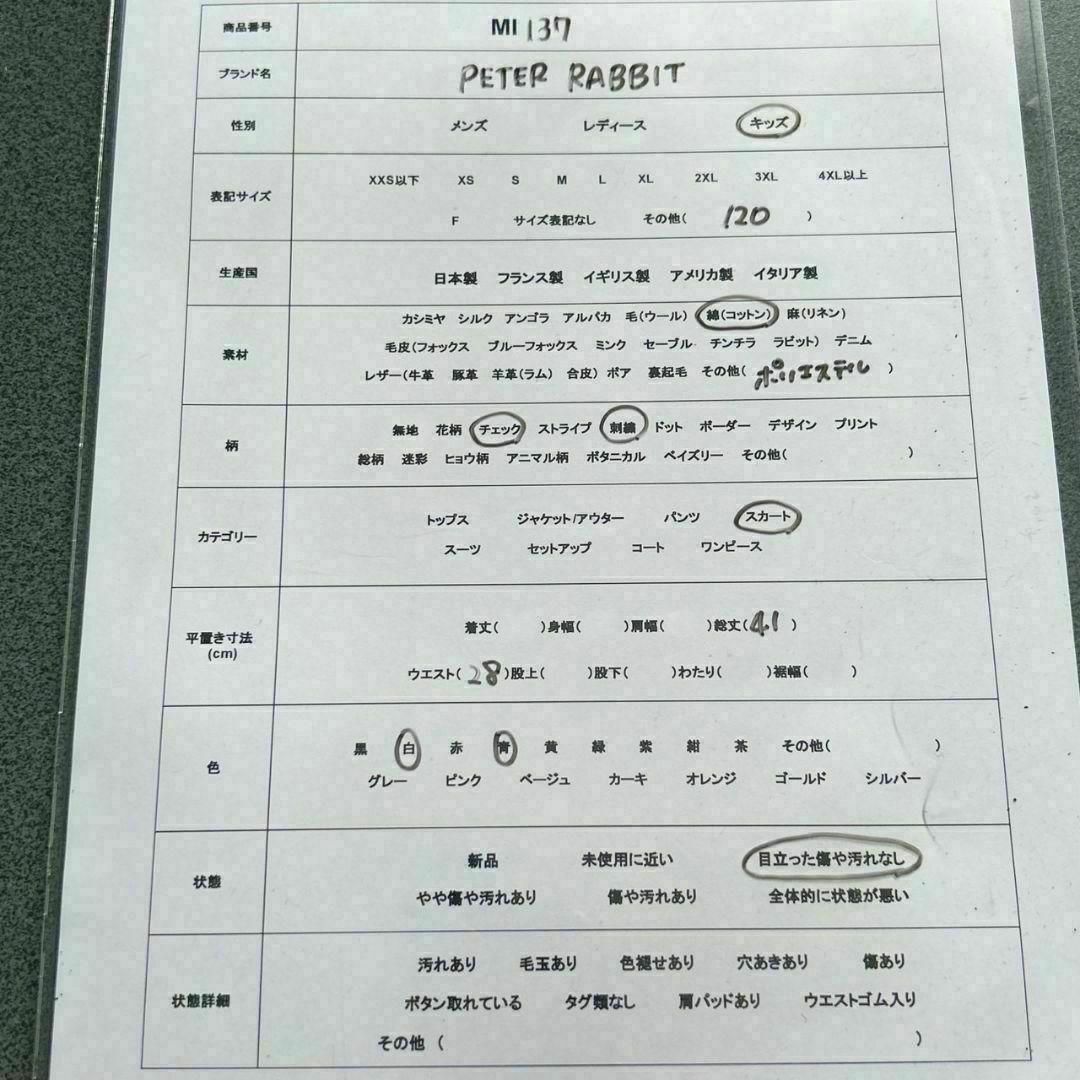 商品番号 MI 137
ブランド名 PETER RABBIT
性別 メンズ レディース キッズ
表記サイズ
XXS以下 XS S M L XL 2XL 3XL 4XL以上
F サイズ表記なし その他( 120 )
生産国 日本製 フランス製 イギリス製 アメリカ製 イタリア製
素材
カシミヤ シルク アンゴラ アルパカ 毛(ウール) 綿(コットン) 麻(リネン)
毛皮(フォックス ブルーフォックス ミンク セーブル チンチラ ラビット) デニム
レザー(牛革 豚革 羊革(ラム) 合皮) ボア 裏起毛 その他( ポリエステル )
柄
無地 花柄 チェック ストライプ 刺繍 ドット ボーダー デザイン プリント
総柄 迷彩 ヒョウ柄 アニマル柄 ボタニカル ペイズリー その他( )
カテゴリー
トップス ジャケット/アウター パンツ スカート
スーツ セットアップ コート ワンピース
平置き寸法
(cm)
着丈( )身幅( )肩幅( )総丈( 41 )
ウエスト( 28 )股上( )股下( )わたり( )裾幅( )
色
黒 白 赤 青 黄 緑 紫 紺 茶 その他( )
グレー ピンク ベージュ カーキ オレンジ ゴールド シルバー
状態
新品 未使用に近い 目立った傷や汚れなし
やや傷や汚れあり 傷や汚れあり 全体的に状態が悪い
状態詳細
汚れあり 毛玉あり 色褪せあり 穴あきあり 傷あり
ボタン取れている タグ類なし 肩パッドあり ウエストゴム入り
その他 ( )